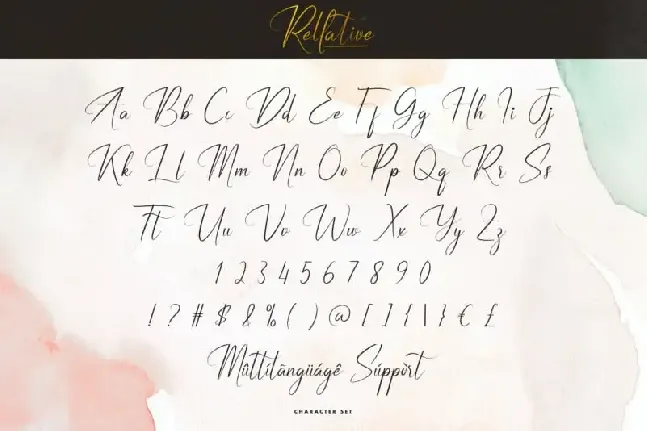 Rellative
Aa Bb Cc Dd Ee Ff Gg Hh Ii Jj
Kk Ll Mm Nn Oo Pp Qq Rr Ss
Tt Uu Vv Ww Xx Yy Zz
1 2 3 4 5 6 7 8 9 0
! ? # $ & % ( ) @ [ ] { | } € £
Mûltílãngüágê Súppört
CHARACTER SET